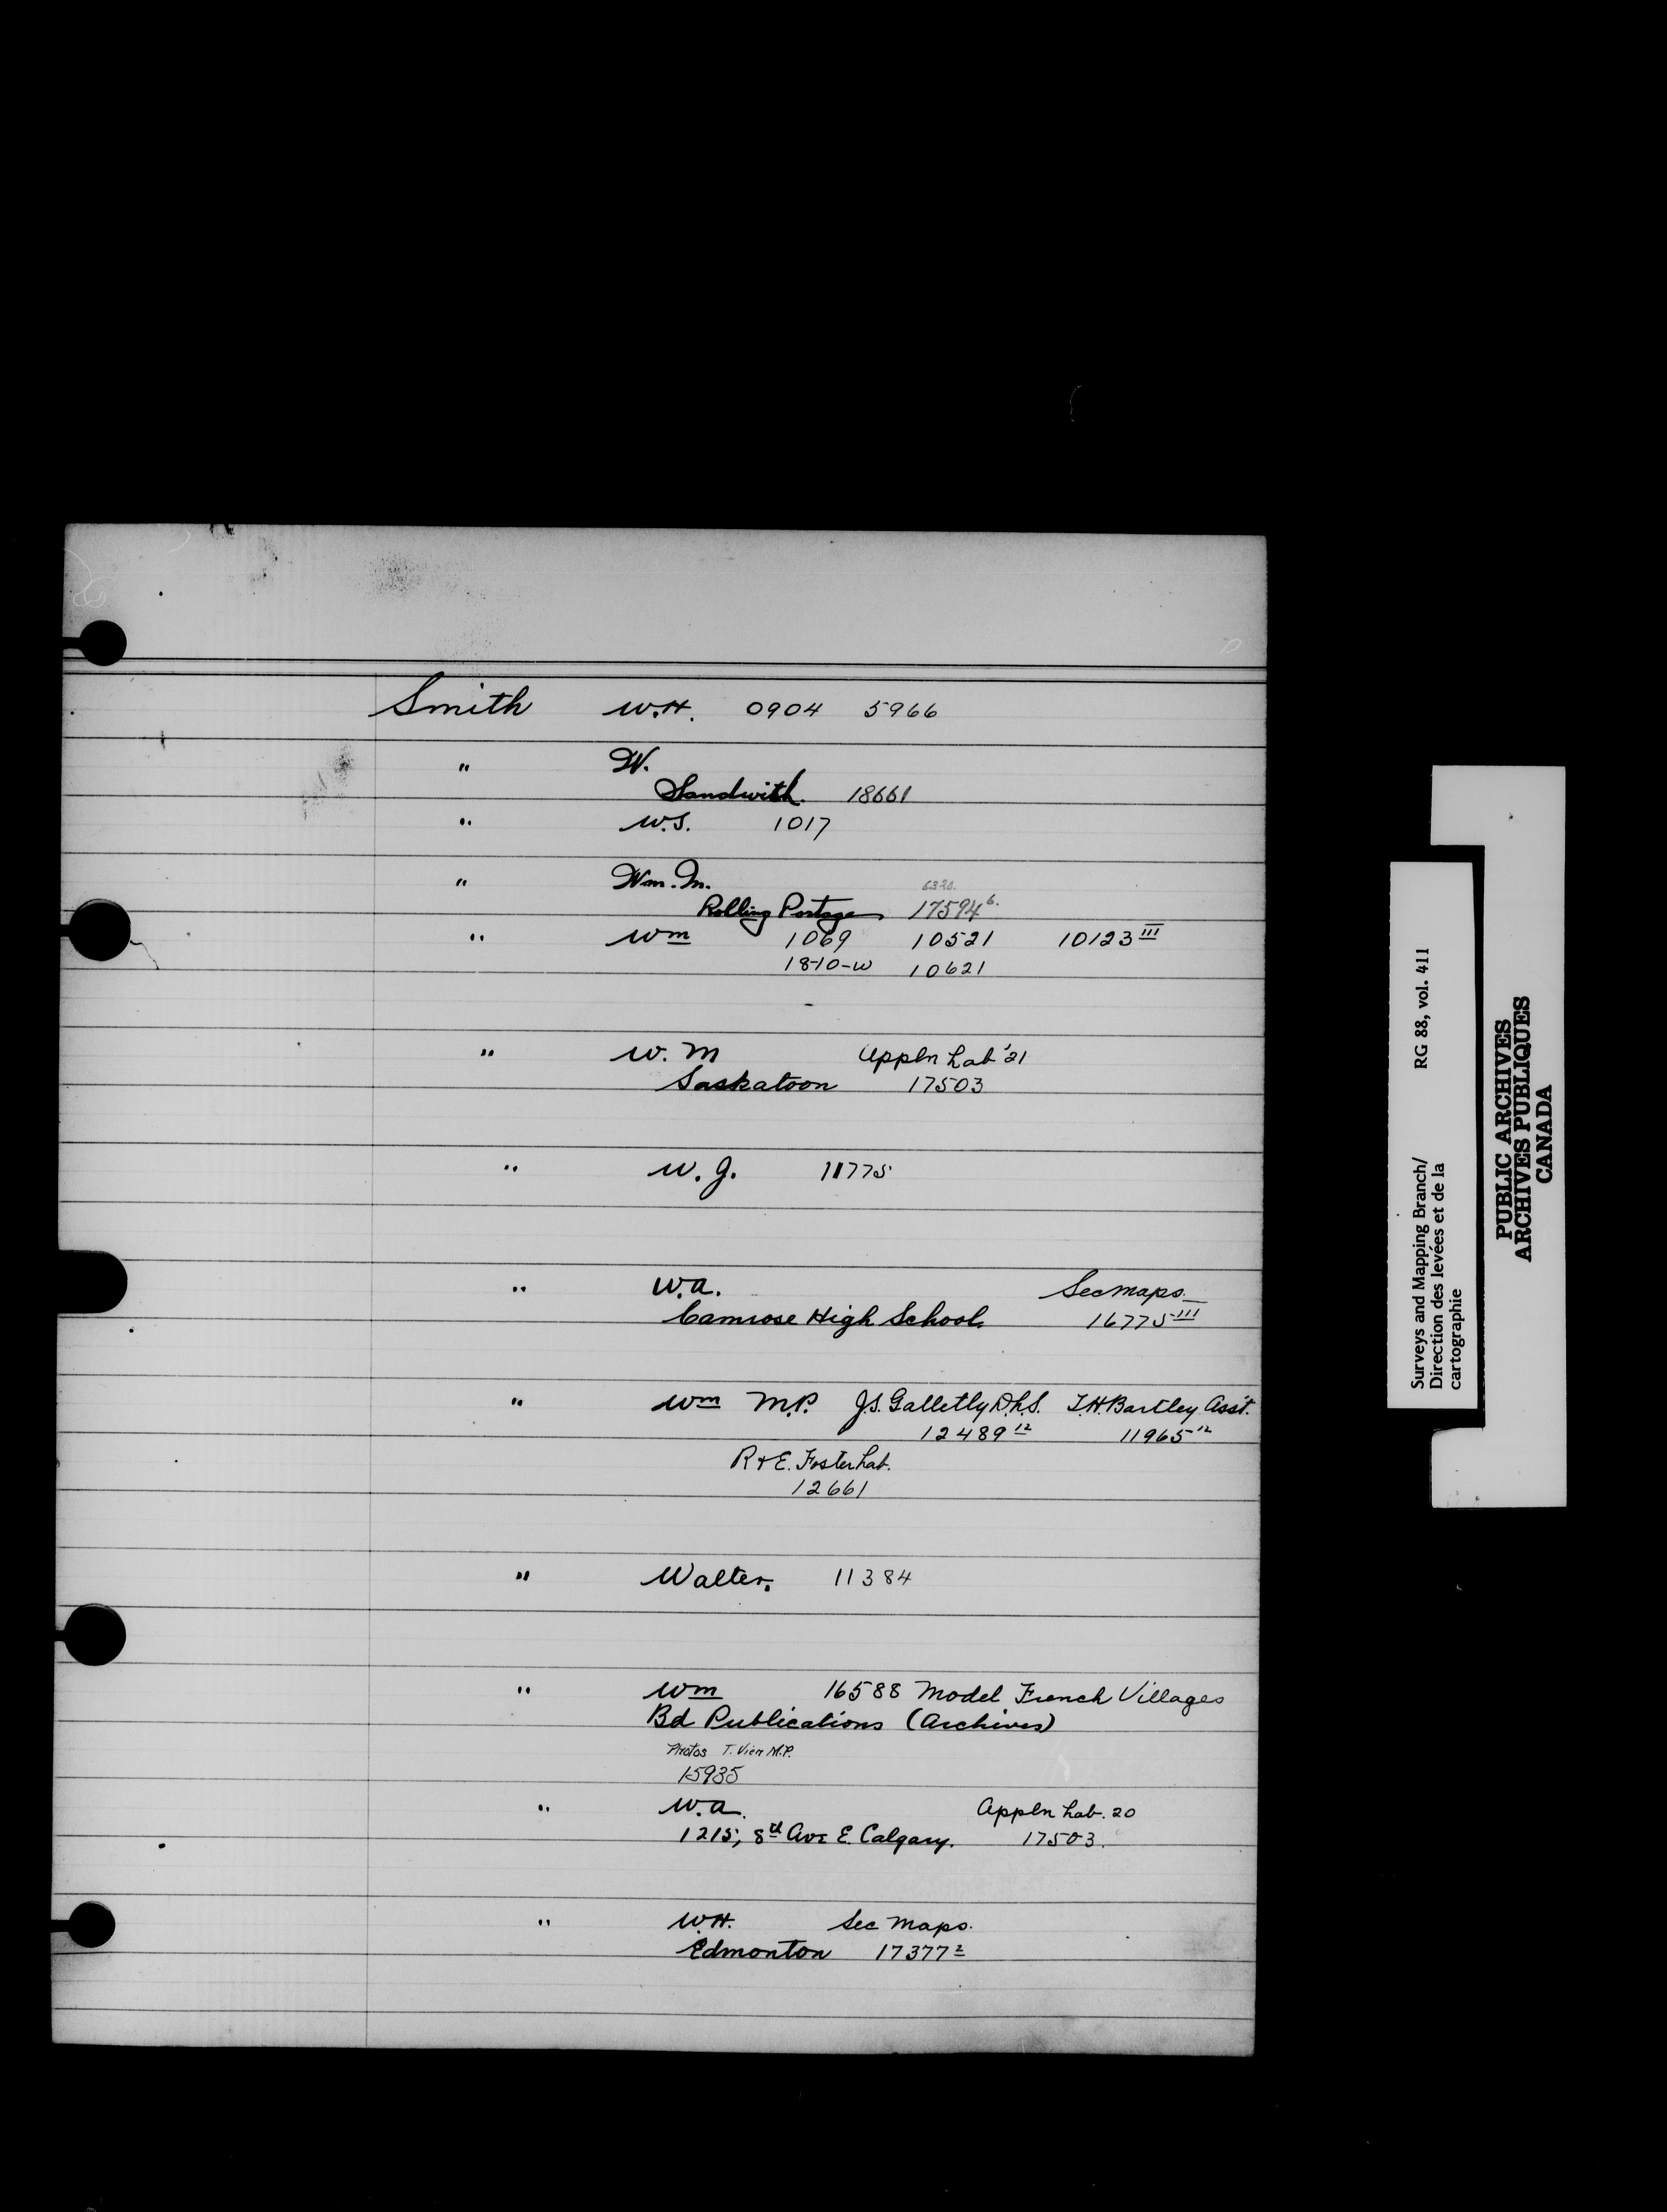 Smith W.H. 0904 5966
" W.
Sandwith. 18661
" W.S. 1017
" Wm. M.
6330.
Rolling Portage 17594 6.
" Wm 1069 10521 10123 III
1810-W 10621
" W. M Appln Lab '21
Saskatoon 17503
" W. J. 11775
" W.A. Sec Maps.
Camrose High School. 16775 III
" Wm M.P. J.S. Galletly D.L.S. T.H. Bartley Asst.
12489 12 11965 12
R & E. Foster Lab.
12661
" Walter. 11384
" Wm 16588 Model French Villages
Bd Publications (Archives)
Photos T. Vien M.P.
15935
" W.A. Appln Lab. 20
1215, 8th Ave E. Calgary. 17503.
" W.H. Sec Maps.
Edmonton 17377 2
Surveys and Mapping Branch/ RG 88, vol. 411
Direction des levées et de la
cartographie
PUBLIC ARCHIVES
ARCHIVES PUBLIQUES
CANADA